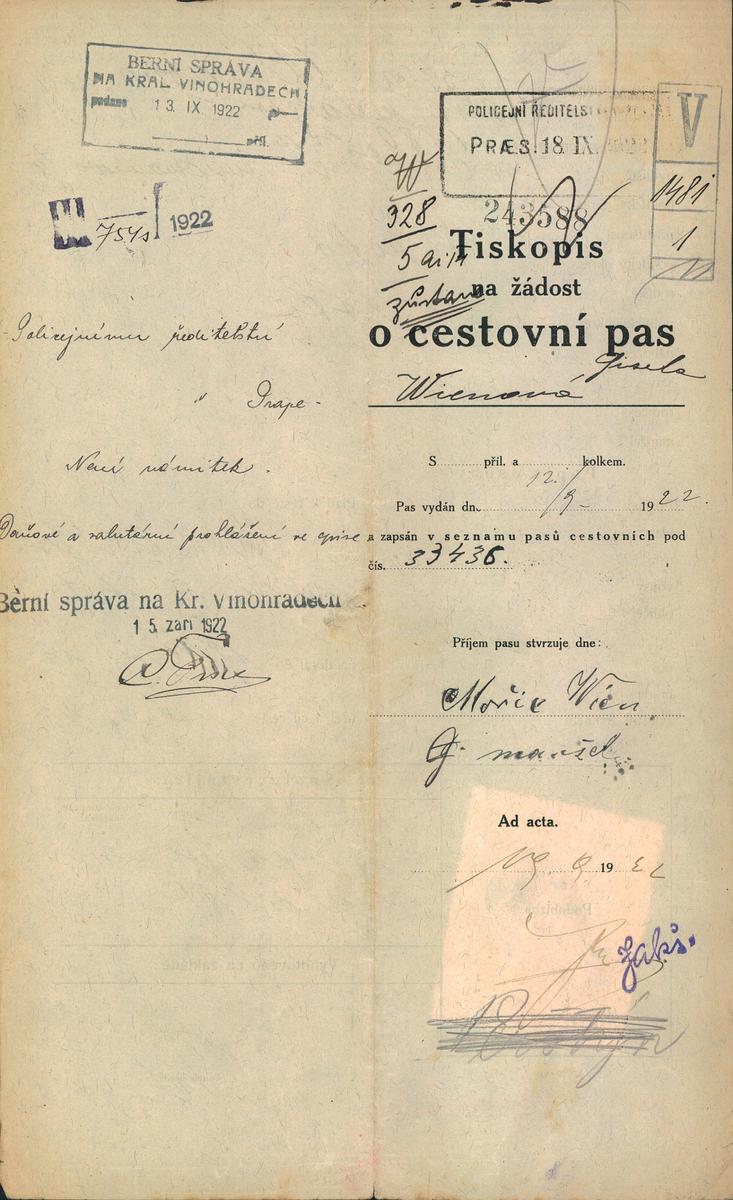 BERNÍ SPRÁVA
NA KRÁL VINOHRADECH
podano 13 IX 1922
příl.
1922
Policejnímu ředitelství
v Praze
Není námitek.
Daňové a valutární prohlášení ve spise
Berní správa na Kr. Vinohradech
15. září 1922
POLICEJNÍ ŘEDITELSTVÍ
PRÆS. 18. IX. 1922
V
1481
1
11
W
328
243588
Tiskopis
zůstane
na žádost
o cestovní pas
Wienová, Gisela
S příl. a kolkem.
Pas vydán dne 12./9. 1922.
a zapsán v seznamu pasů cestovních pod
čís. 33436.
Příjem pasu stvrzuje dne:
Mořic Wien
manžel
Ad acta.
19. 9. 1922